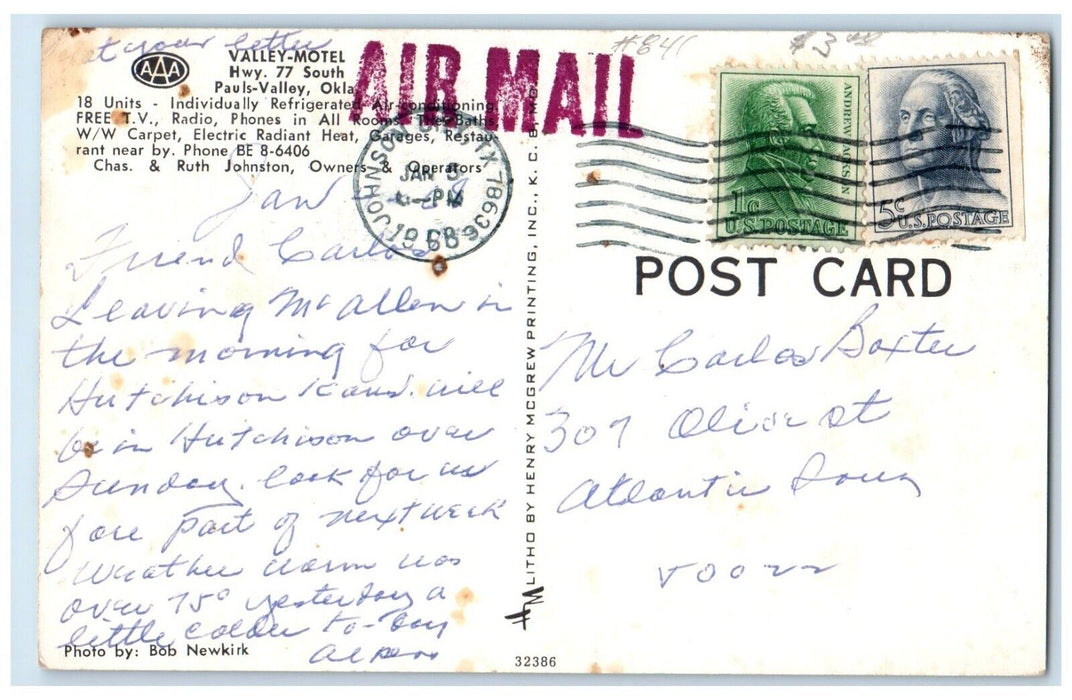 got your letter
AAA
VALLEY-MOTEL
Hwy. 77 South
Pauls-Valley, Okla
18 Units - Individually Refrigerated Air-conditioning
FREE T.V., Radio, Phones in All Rooms, Tile Baths,
W/W Carpet, Electric Radiant Heat, Garages, Restau-
rant near by. Phone BE 8-6406
Chas. & Ruth Johnston, Owners & Operators
AIR MAIL
#841
$3.00
JOHNSON CITY, TX 78636
JAN 5
PM
1968
ANDREW JACKSON
1c
U.S. POSTAGE
5c
U.S. POSTAGE
Jan
Friend Carlos
Leaving McAllen in
the morning for
Hutchison Kans. will
be in Hutchison over
Sunday. look for us
fore part of next week
Weather warm was
over 75° yesterday a
little colder to-day
Photo by: Bob Newkirk
LITHO BY HENRY MCGREW PRINTING, INC., K. C. 8, MO.
32386
POST CARD
Mr Carlos Baxter
307 Olive st
Atlantic Iowa
50022